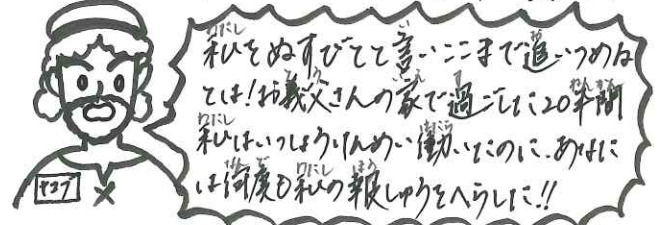 私をぬすびとと言いここまで追いつめる
とは!お義父さんの家で過ごした20年間
私はいっしょうけんめい働いたのに、あなた
は何度も私の報しゅうをへらした!!
ヤコブ